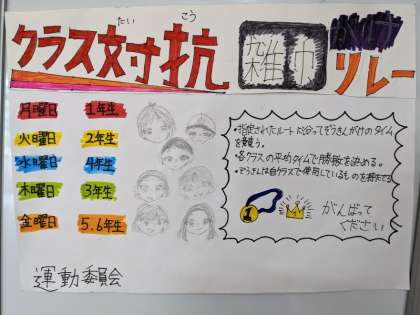 たい こう
クラス対抗 雑巾 リレー
月曜日 1年生
火曜日 2年生
水曜日 4年生
木曜日 3年生
金曜日 5.6年生
・指定されたルートに沿ってぞうきんがけのタイム
を競う。
・各クラスの平均タイムで勝敗を決める。
・ぞうきんは自クラスで使用しているものを持参する
1
がんばって
ください
運動委員会